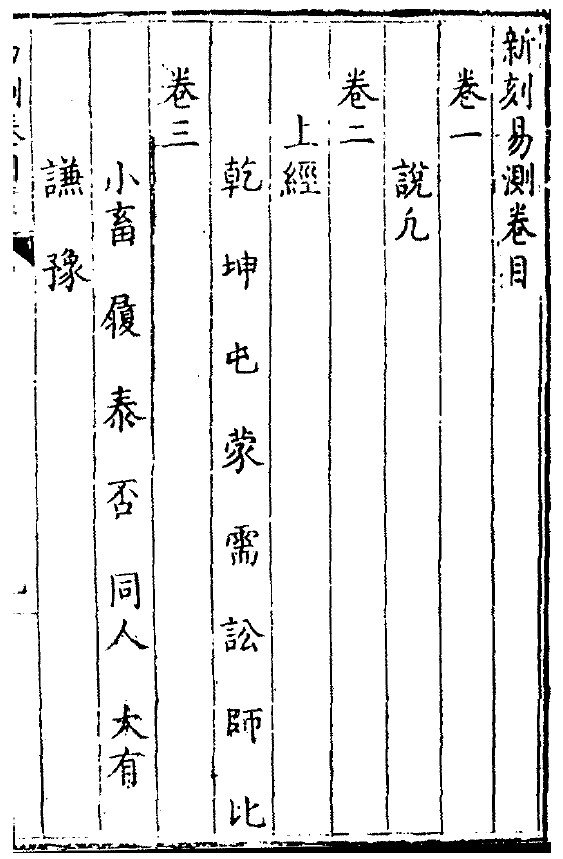 新刻易測卷目
卷一
說凢
卷二
上經
乾 坤 屯 蒙 需 訟 師 比
卷三
小畜 履 泰 否 同人 大有
謙 豫